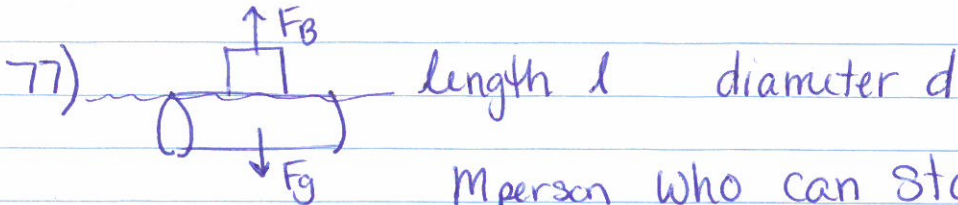 F_B
77) length l diameter d
F_g Mperson who can sto